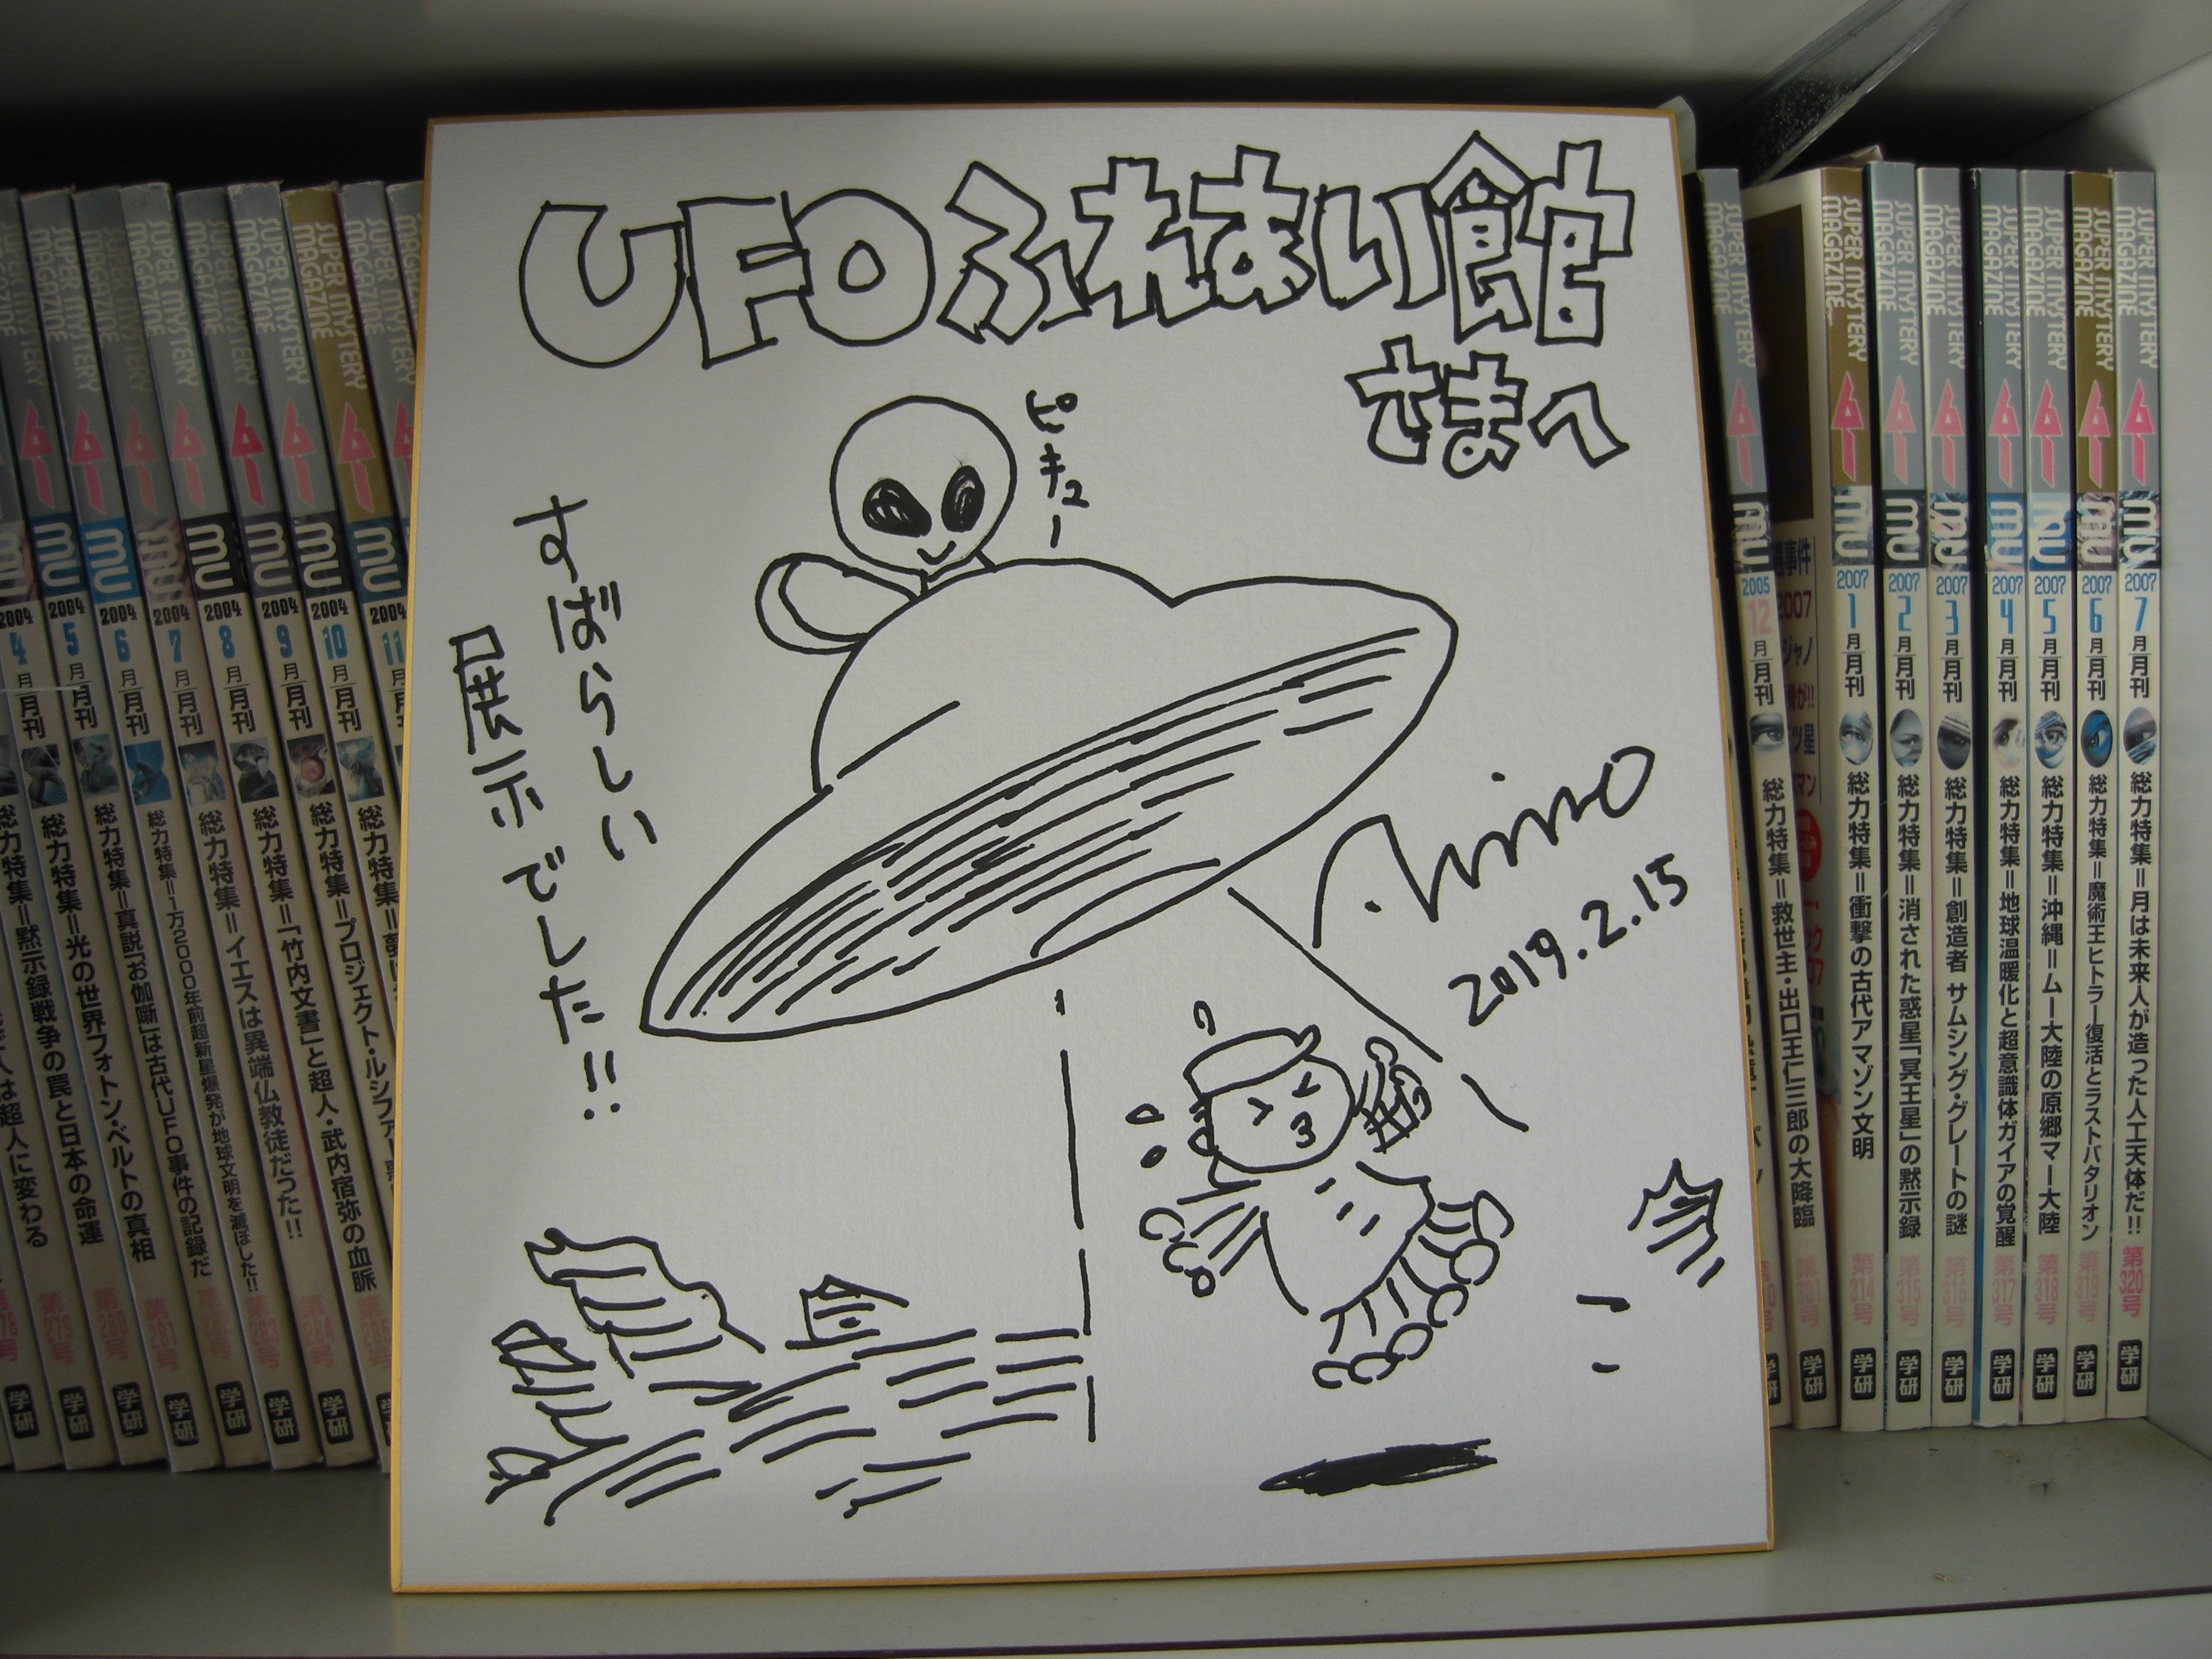 UFOふれあい館
さまへ
ピキュー
すばらしい
展示でした!!
2019.2.15
SUPER MYSTERY MAGAZINE ムー mu 2004 4月 月刊
SUPER MYSTERY MAGAZINE ムー mu 2004 5月 月刊 総力特集=黙示録戦争の罠と日本の命運 第279号 学研
SUPER MYSTERY MAGAZINE ムー mu 2004 6月 月刊 総力特集=光の世界フォトン・ベルトの真相 第280号 学研
SUPER MYSTERY MAGAZINE ムー mu 2004 7月 月刊 総力特集=真説「お伽噺」は古代UFO事件の記録だ 第281号 学研
SUPER MYSTERY MAGAZINE ムー mu 2004 8月 月刊 総力特集=1万2000年前超新星爆発が地球文明を滅ぼした!! 学研
SUPER MYSTERY MAGAZINE ムー mu 2004 9月 月刊 総力特集=イエスは異端仏教徒だった!! 第283号 学研
SUPER MYSTERY MAGAZINE ムー mu 2004 10月 月刊 総力特集=「竹内文書」と超人・武内宿弥の血脈 第284号 学研
ムー mu 2004 11月 月刊 総力特集=プロジェクト・ルシファー
SUPER MYSTERY MAGAZINE ムー mu 2005 12月 月刊 総力特集=救世主・出口王仁三郎の大降臨 学研
SUPER MYSTERY MAGAZINE ムー mu 2007 1月 月刊 総力特集=衝撃の古代アマゾン文明 第314号 学研
SUPER MYSTERY MAGAZINE ムー mu 2007 2月 月刊 総力特集=消された惑星「冥王星」の黙示録 第315号 学研
SUPER MYSTERY MAGAZINE ムー mu 2007 3月 月刊 総力特集=創造者 サムシング・グレートの謎 第316号 学研
SUPER MYSTERY MAGAZINE ムー mu 2007 4月 月刊 総力特集=地球温暖化と超意識体ガイアの覚醒 第317号 学研
SUPER MYSTERY MAGAZINE ムー mu 2007 5月 月刊 総力特集=沖縄=ムー大陸の原郷マー大陸 第318号 学研
SUPER MYSTERY MAGAZINE ムー mu 2007 6月 月刊 総力特集=魔術王ヒトラー復活とラストバタリオン 第319号 学研
SUPER MYSTERY MAGAZINE ムー mu 2007 7月 月刊 総力特集=月は未来人が造った人工天体だ!! 第320号 学研